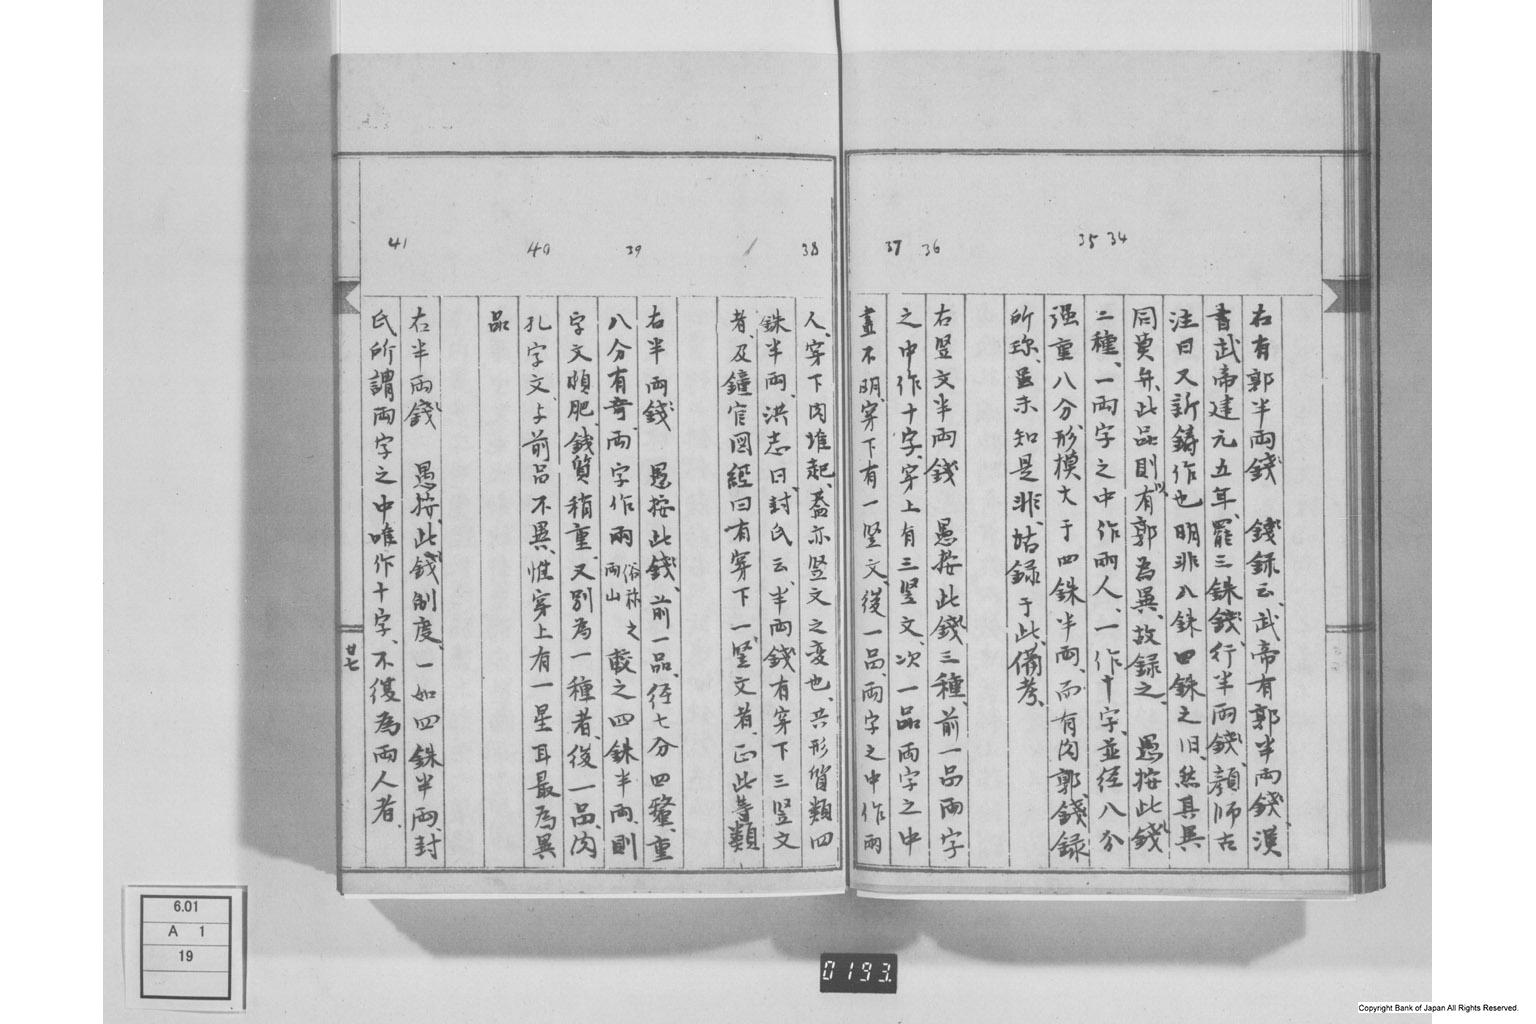 34 35 36 37
右有郭半両錢　錢録云、武帝有郭半両錢、漢
書武帝建元五年、罷三銖錢、行半両錢、顔師古
注曰又新鋳作也明非八銖四銖之旧、然其異
同莫弁、此品則有以郭為異、故録之、愚按此錢
二種、一両字之中作両人、一作十字、並径八分
强重八分、形模大于四銖半両、而有肉郭、錢録
所珎、虽未知是非、姑録于此、備考、
右竖文半両錢　愚按此錢三種、前一品両字
之中作十字、穿上有三竖文、次一品両字之中
畫不明、穿下有一竖文、後一品、両字之中作両
38 39 40 41
人、穿下肉堆起、蓋亦竖文之変也、共形質類四
銖半両、洪志曰、封氏云、半両錢有穿下三竖文
者、及鐘官図經曰有穿下一竖文者、正此等類
右半両錢　愚按此錢、前一品、径七分四釐、重
八分有竒、両字作両俗称之両山較之四銖半両、則
字文頗肥、銭質稍重、又別為一種者、後一品、肉
孔字文、与前品不異、惟穿上有一星耳最為異
品
右半両錢　愚按、此錢制度、一如四銖半両、封
氏所謂両字之中唯作十字、不復為両人者、
廿七
6.01
A 1
19
0193.
Copyright Bank of Japan All Rights Reserved.